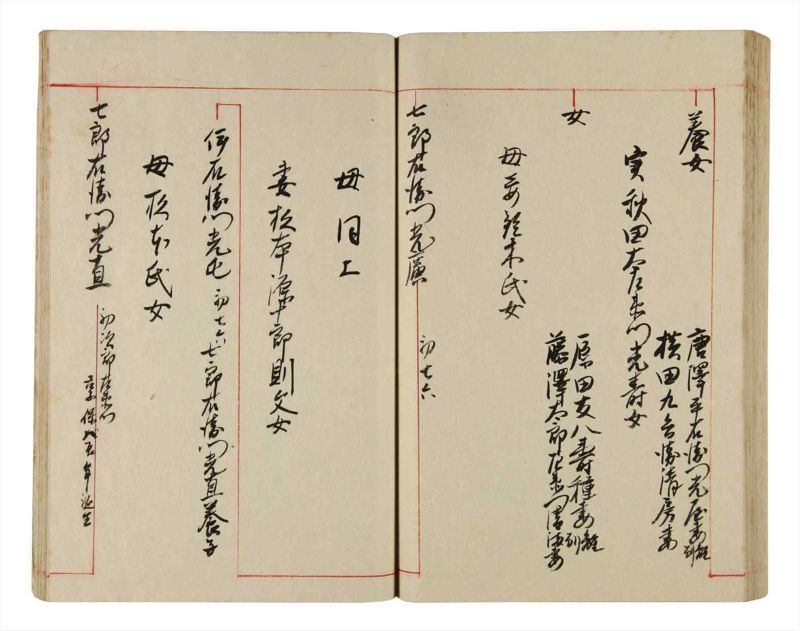 養女
唐澤平右衛門光屋妻離別
横田九兵衛清房妻
実秋田太左衛門光寿女
女
原田友八寿種妻離別
藤澤太郎左衛門妻
母妾鈴木氏女
七郎右衛門光廉 初七六
母同上
妻松本源十郎則文女
伊右衛門光 初七六七郎右衛門光直養子
母松本氏女
七郎右衛門光直 初次郎左衛門
享保 年誕生